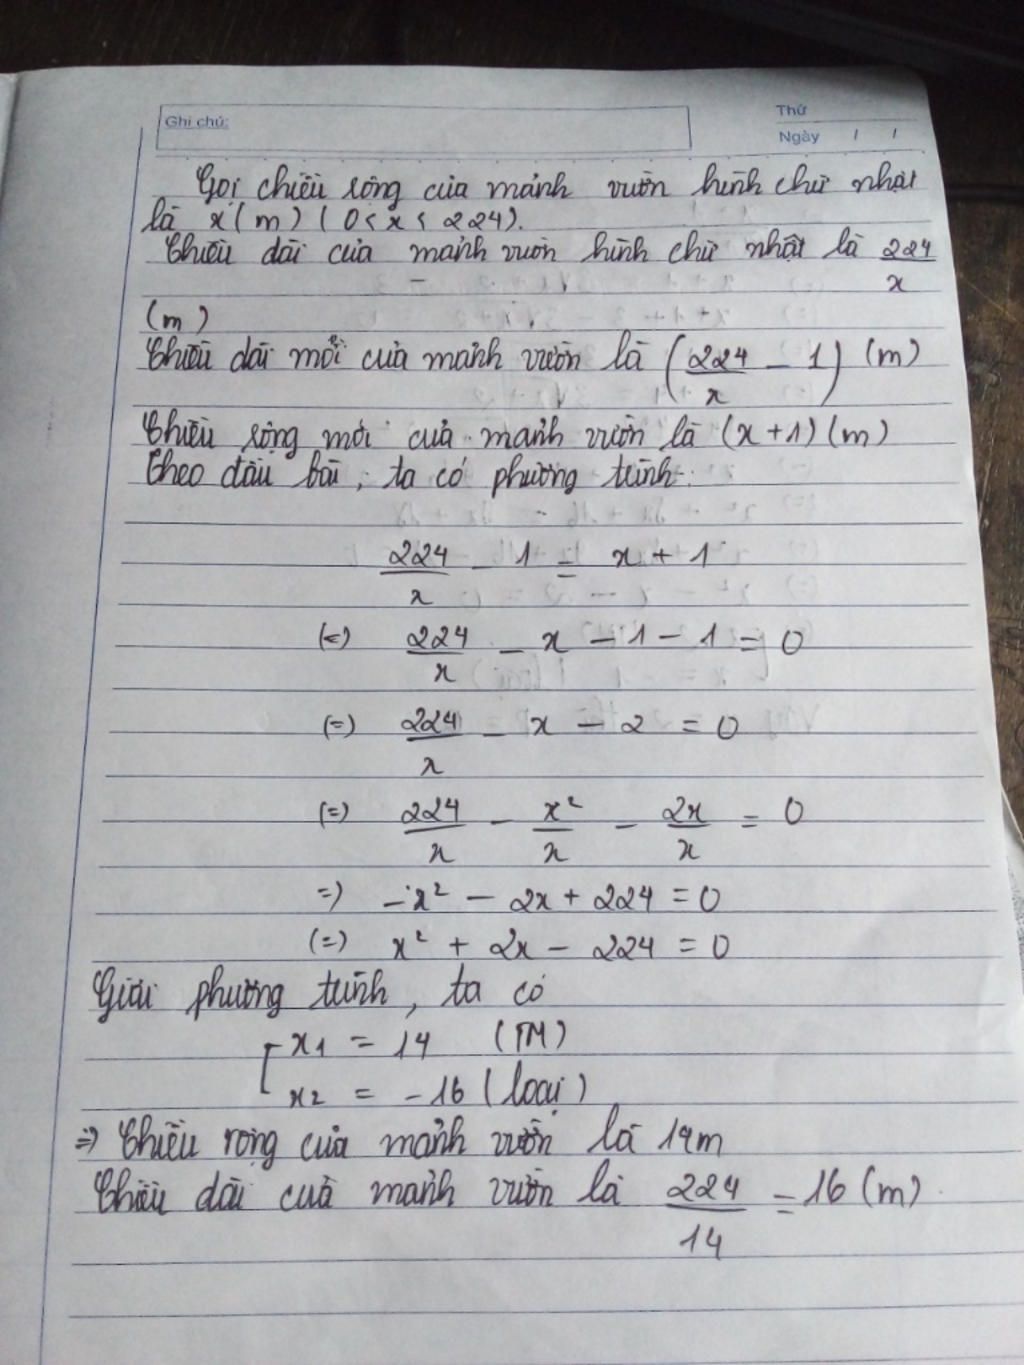 Ghi chú:
Thứ
Ngày / /
Gọi chiều rộng của mảnh vườn hình chữ nhật
là x (m) (0 < x < 224).
Chiều dài của mảnh vườn hình chữ nhật là 224/x
(m)
Chiều dài mới của mảnh vườn là (224/x - 1) (m)
Chiều rộng mới của mảnh vườn là (x+1) (m)
Theo đầu bài, ta có phương trình:
224/x - 1 = x + 1
(=) 224/x - x - 1 - 1 = 0
(=) 224/x - x - 2 = 0
(=) 224/x - x²/x - 2x/x = 0
=) -x² - 2x + 224 = 0
(=) x² + 2x - 224 = 0
Giải phương trình, ta có
[ x1 = 14 (TM)
x2 = -16 (loại)
=> Chiều rộng của mảnh vườn là 14m
Chiều dài của mảnh vườn là 224/14 = 16 (m)